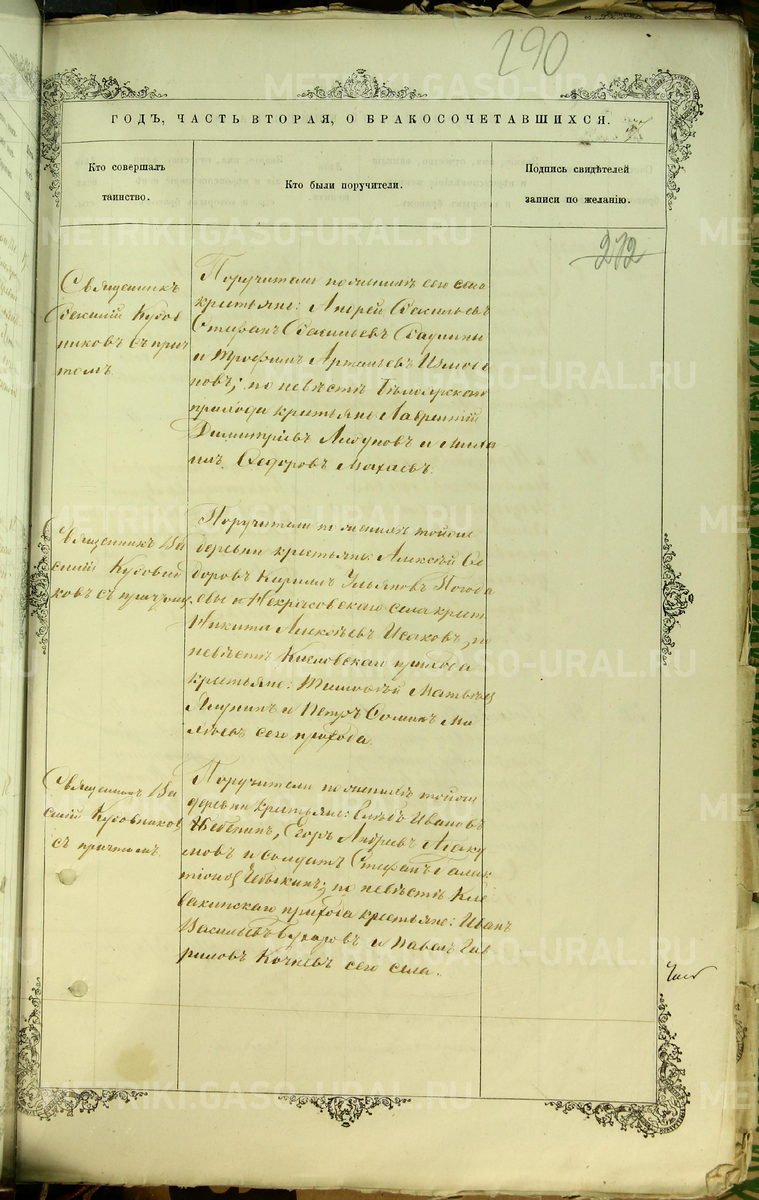 290
ГОДЪ, ЧАСТЬ ВТОРАЯ, О БРАКОСОЧЕТАВШИХСЯ.
Кто совершалъ
таинство.
Кто были поручители.
Подпись свидѣтелей
записи по желанію.
272
Священникъ
Василій Кубов
никовъ съ прич
томъ.
Поручители по женихѣ сего села
крестьяне: Андрей Васильевъ
Стефанъ Васильевъ
и Трофимъ Артемьевъ
новъ; по невѣстѣ Бѣлоярскаго
прихода крестьяне Лаврентій
Димитріевъ и
Ѳедоровъ
Священникъ Ва
силій Кубовни
ковъ съ причтомъ.
Поручители по женихѣ тойже
деревни крестьяне: Алексѣй Ѳе
доровъ Кирилъ Ульяновъ Погода
евы и Некрасовскаго села крест.
Никита Алексѣевъ Исаковъ; по
невѣстѣ Кисловскаго прихода
крестьяне: Тимоѳей Матвѣев
и Петръ Ѳоминъ Ма
сего прихода.
Священникъ Ва
силій Кубовников
съ причтомъ.
Поручители по женихѣ тойже
деревни крестьяне: Ивановъ
Жебенинъ, Егоръ Андреевъ Абаку
мовъ и солдатъ Стефанъ Галак
тіонов Чебыкинъ; по невѣстѣ Кле
вакинскаго прихода крестьяне: Иванъ
Васильевъ и Павелъ Гав
риловъ Кочневъ сего села.
METRIKI.GASO-URAL.RU